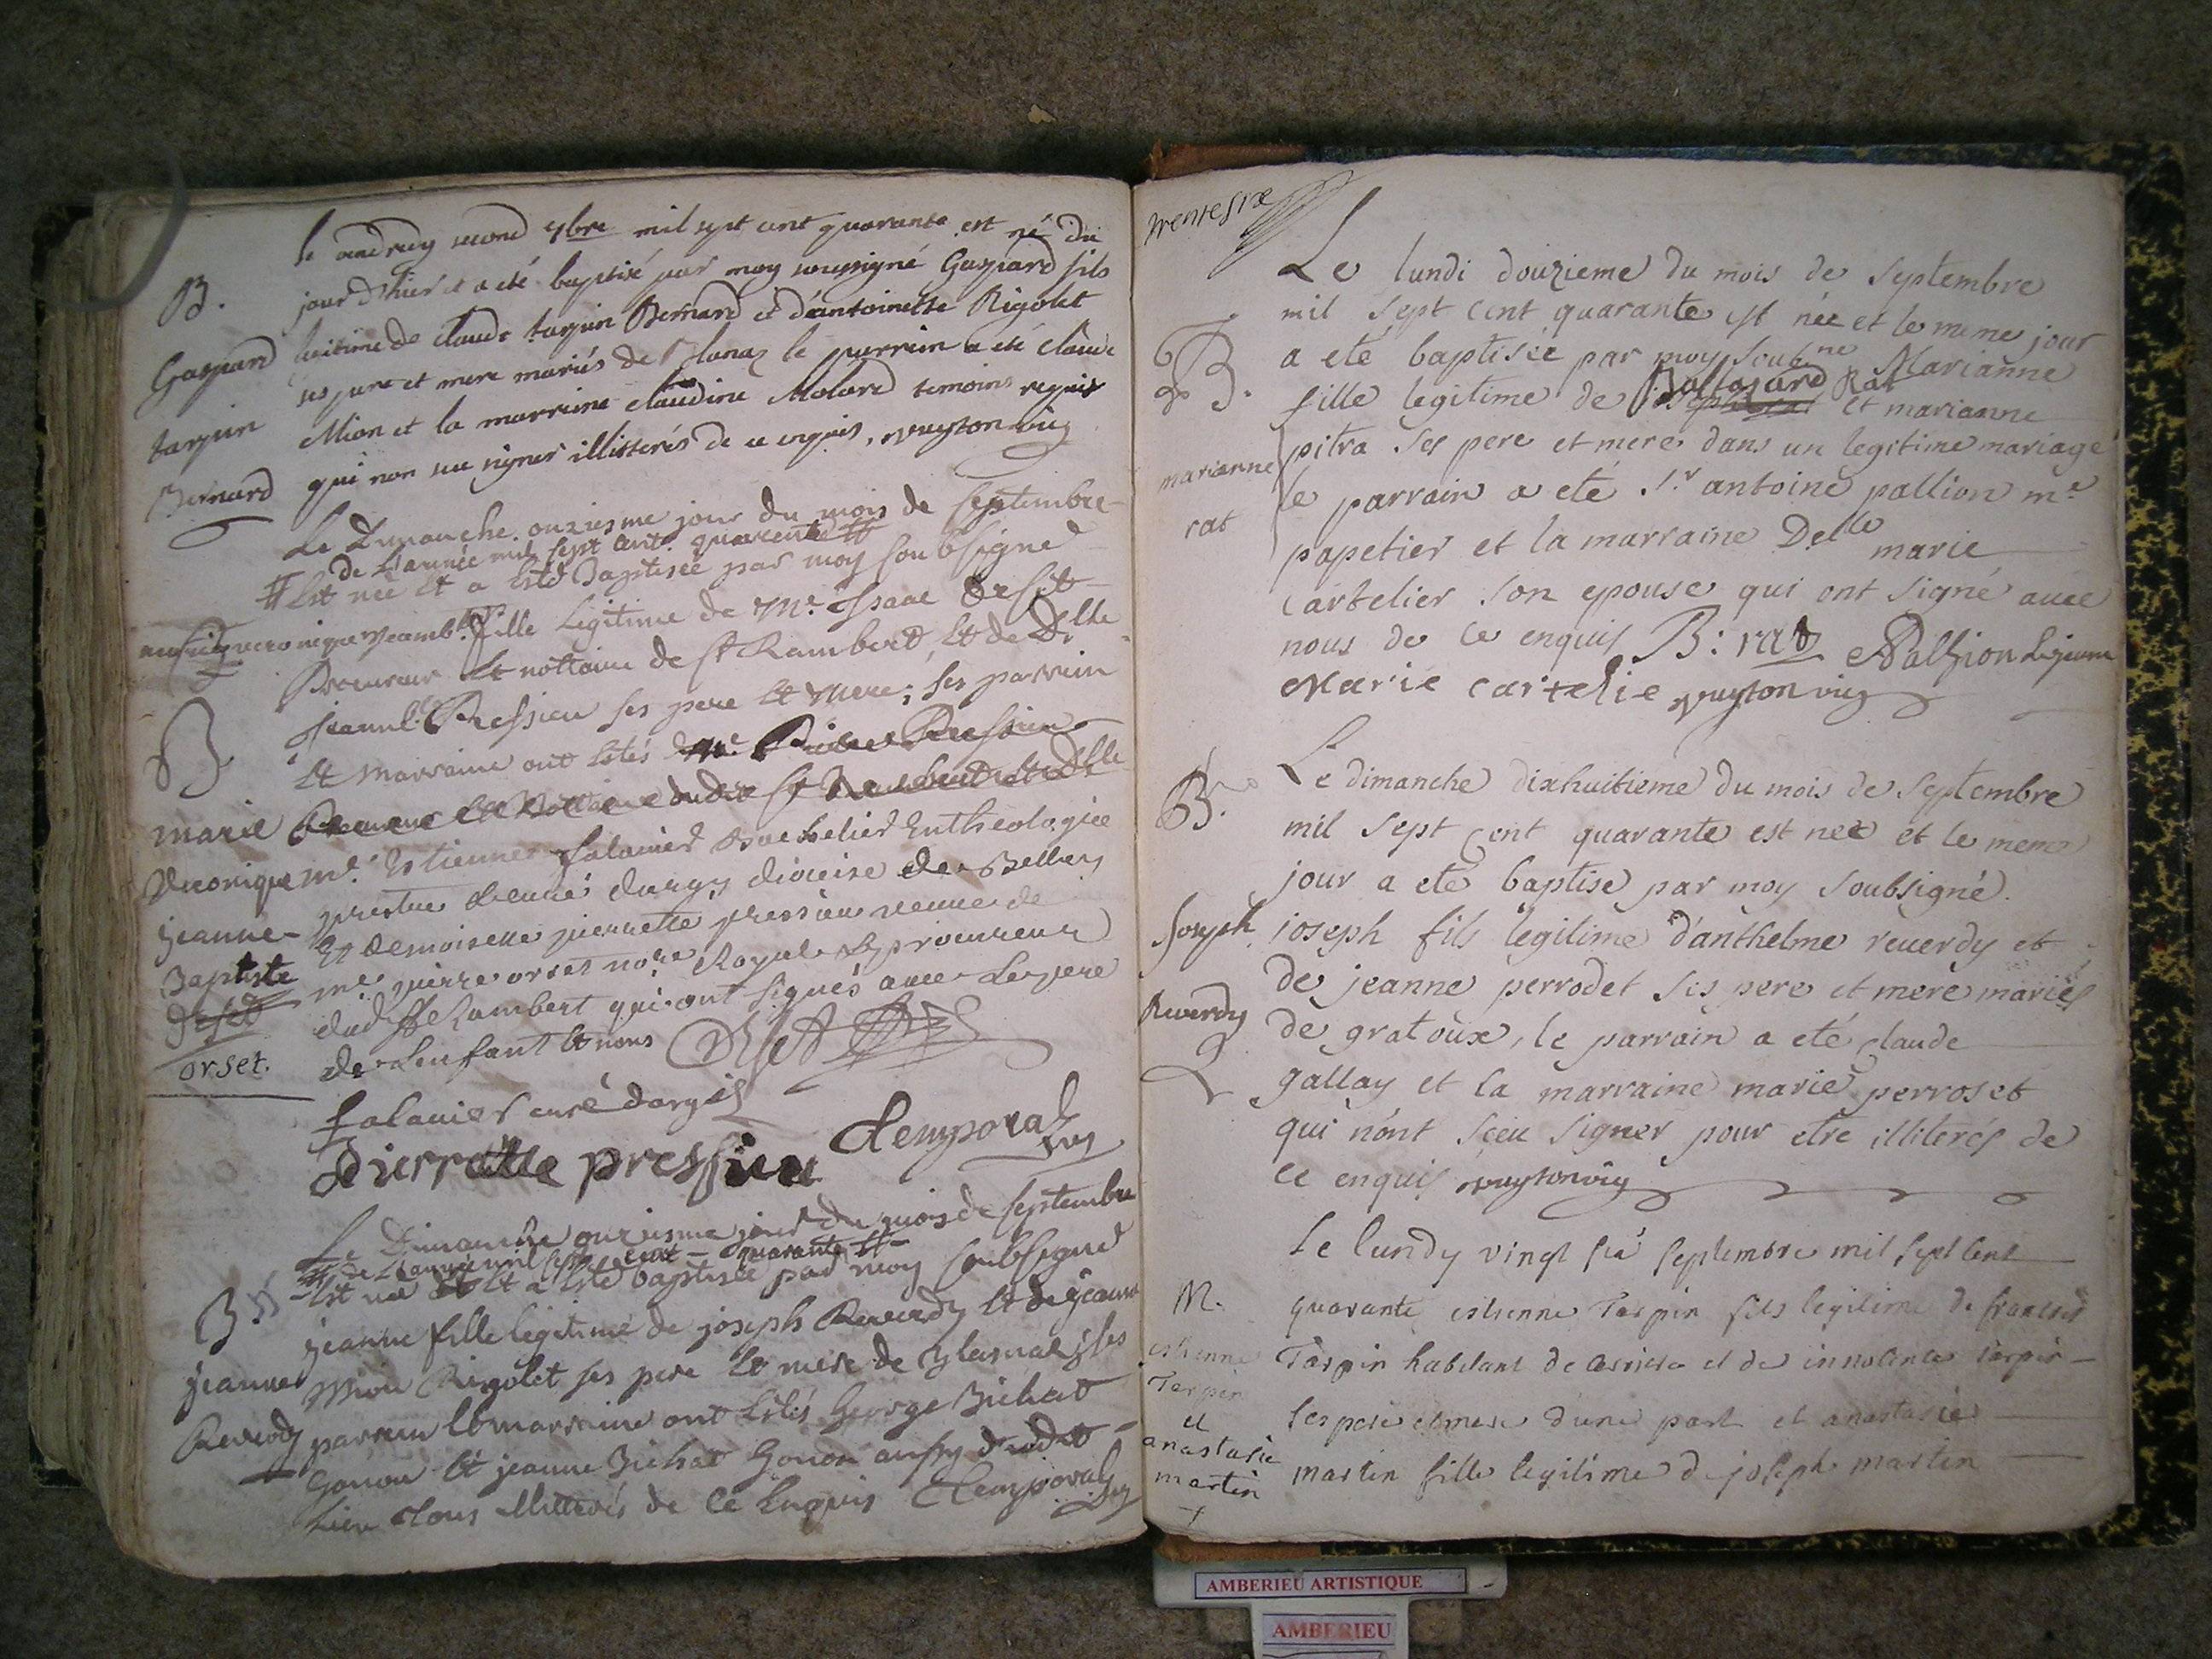 le vendredy second 7bre mil sept cent quarante est né du
jour d'hier et a eté baptisé par moy soussigné Gaspard fils
legitime de claude tarpin Bernard et d'antoinette Rigolet
ses pere et mere mariés de le parrein a eté claude
Mion et la marreine claudine Molard temoins requis
qui non sceu signer illitterés de ce enquis
B.
Gaspard
tarpin
Bernard
Le Dimanche onziesme jour du mois de septembre
de L'année mil sept cent quarente #
# Est née et a Esté Baptisée par moy soubsigné
fille Legitime de Me. Isaac Orset
Procureur Et nottaire de st Rambert, Et de Dlle
Jeanne Pressieu ses pere Et Mere; ses parrein
Et Marraine ont Estés
me. Estienne falavier Bachelier En theologie
prestre Et curé d'argis dioceise de Belley
Et demoiselle pierrette pressieu veuve de
me pierre orset nore Royal Et procureur
dud st Rambert qui ont signés avec Le pere
de L'enfant Et nous Orset
B
marie
Veronique
jeanne
Baptiste
orset.
falavier curé dargis
pierrette pressieu Temporal
Le Dimanche onziesme jour du mois de septembre
# de L'année mil sept cent quarante #
Est née Et a Esté baptisée par moy soubsigné
jeanne fille legitime de joseph Reverdy Et de jeanne
Mion Rigolet ses pere Et mere de ses
parrein Et marraine ont Estés George Bichat
Gonon Et jeanne Bichat Gonon aussy dudit
Lieu tous illitterés de ce Enquis Temporal
B
jeanne
Reverdy
trentesix
Le lundi douzieme du mois de septembre
mil sept cent quarante est née et le meme jour
a eté baptisée par moy soubne Marianne
fille legitime de Baltazard Rat et marianne
pitra ses pere et mere dans un legitime mariage
le parrain a eté Sr antoine pallion me
papetier et la marraine Delle marie
cartelier son epouse qui ont signé avec
nous de ce enquis B: rat Pallion Lejeune
Marie cartelie
B.
marianne
rat
Le dimanche dixhuitieme du mois de septembre
mil sept cent quarante est neé et le meme
jour a eté baptise par moy soubsigné
joseph fils legitime d'anthelme reverdy et
de jeanne perrodet ses pere et mere mariés
de gratoux, le parrain a eté claude
gallay et la marraine marie perroset
qui n'ont sceu signer pour etre illiterés de
ce enquis
B.
Joseph
Reverdy
Le lundy vingt six septembre mil sept cent
quarante estienne Tarpin fils legitime de francois
Tarpin habitant de et de innocente Tarpin
ses pere et mere d'une part et anastasie
martin fille legitime de joseph martin
M.
estienne
Tarpin
et
anastasie
martin
AMBERIEU ARTISTIQUE
AMBERIEU